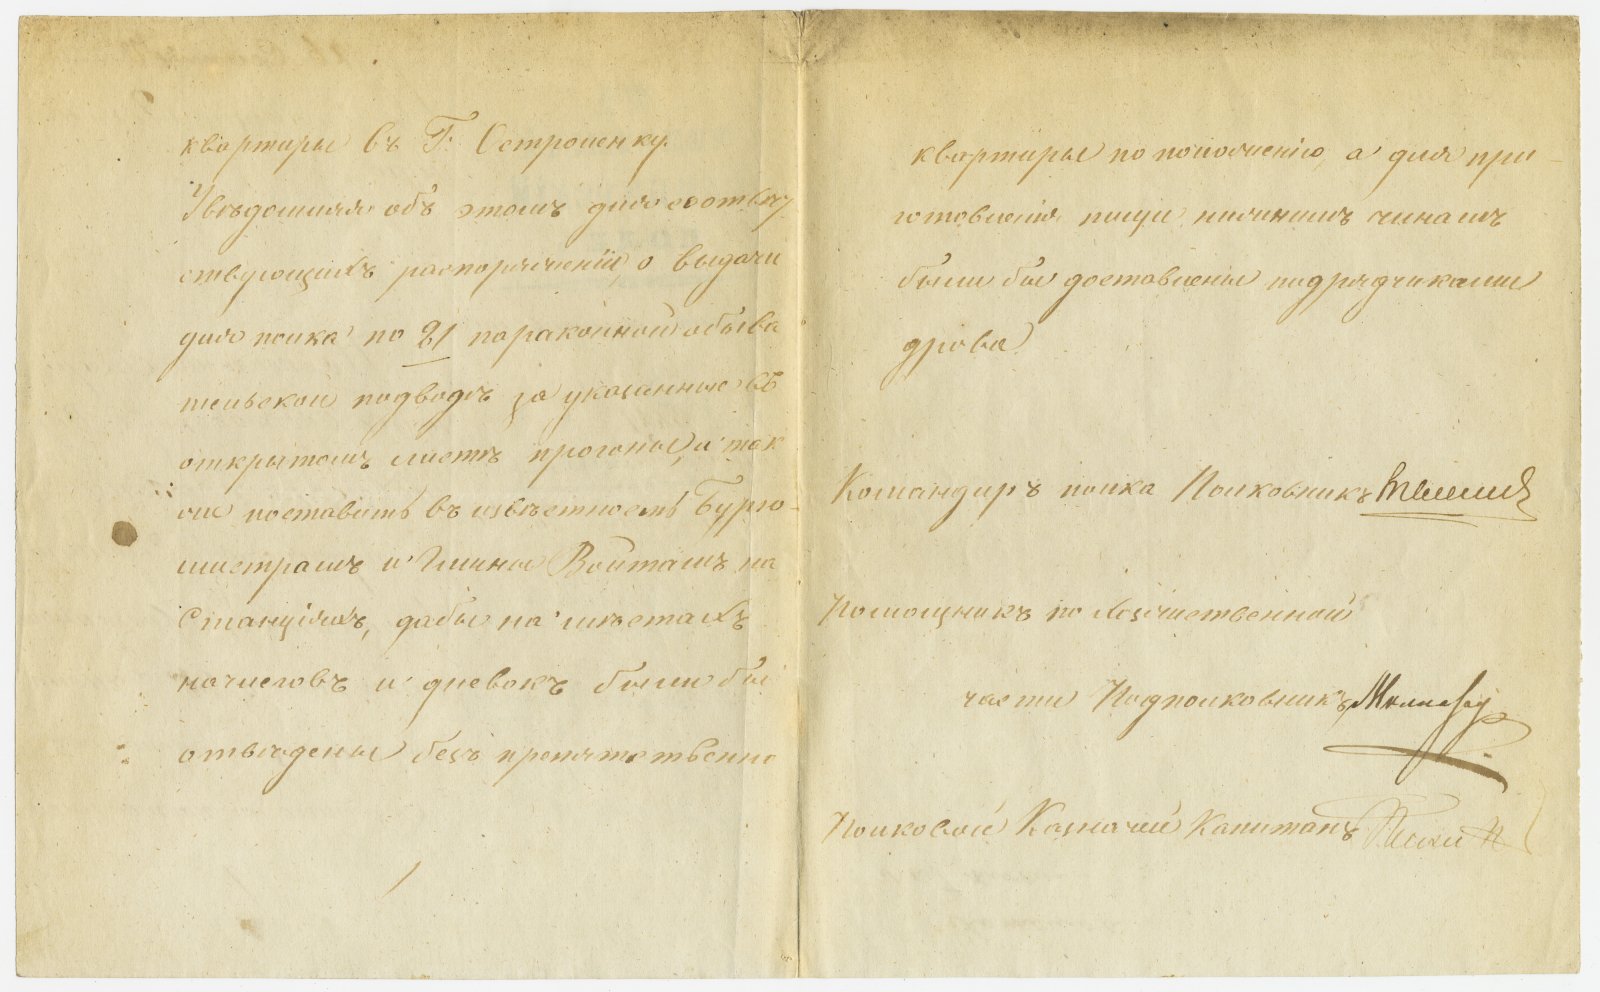 квартиры въ Г. Остроленку.
Увѣдомляя объ этомъ для соотвѣт
ствующихъ распоряженій, о выдачи
для полка по 21 пароконной обыва
тельской подводѣ за указанные въ
открытомъ листѣ прогоны, и так
же поставить въ извѣстность Бурго-
мистрамъ и Гмины Войтамъ на
Станціяхъ, дабы на мѣстахъ
ночлеговъ и дневокъ были бы
отведены безъ препятственно
квартиры по положенію, а для при-
готовленія пищи нижнимъ чинамъ
были бы доставлены подрядчиками
дрова.
Командиръ полка Полковникъ
Помощникъ по хозяйственной
части Подполковникъ
Полковой Казначей Капитанъ